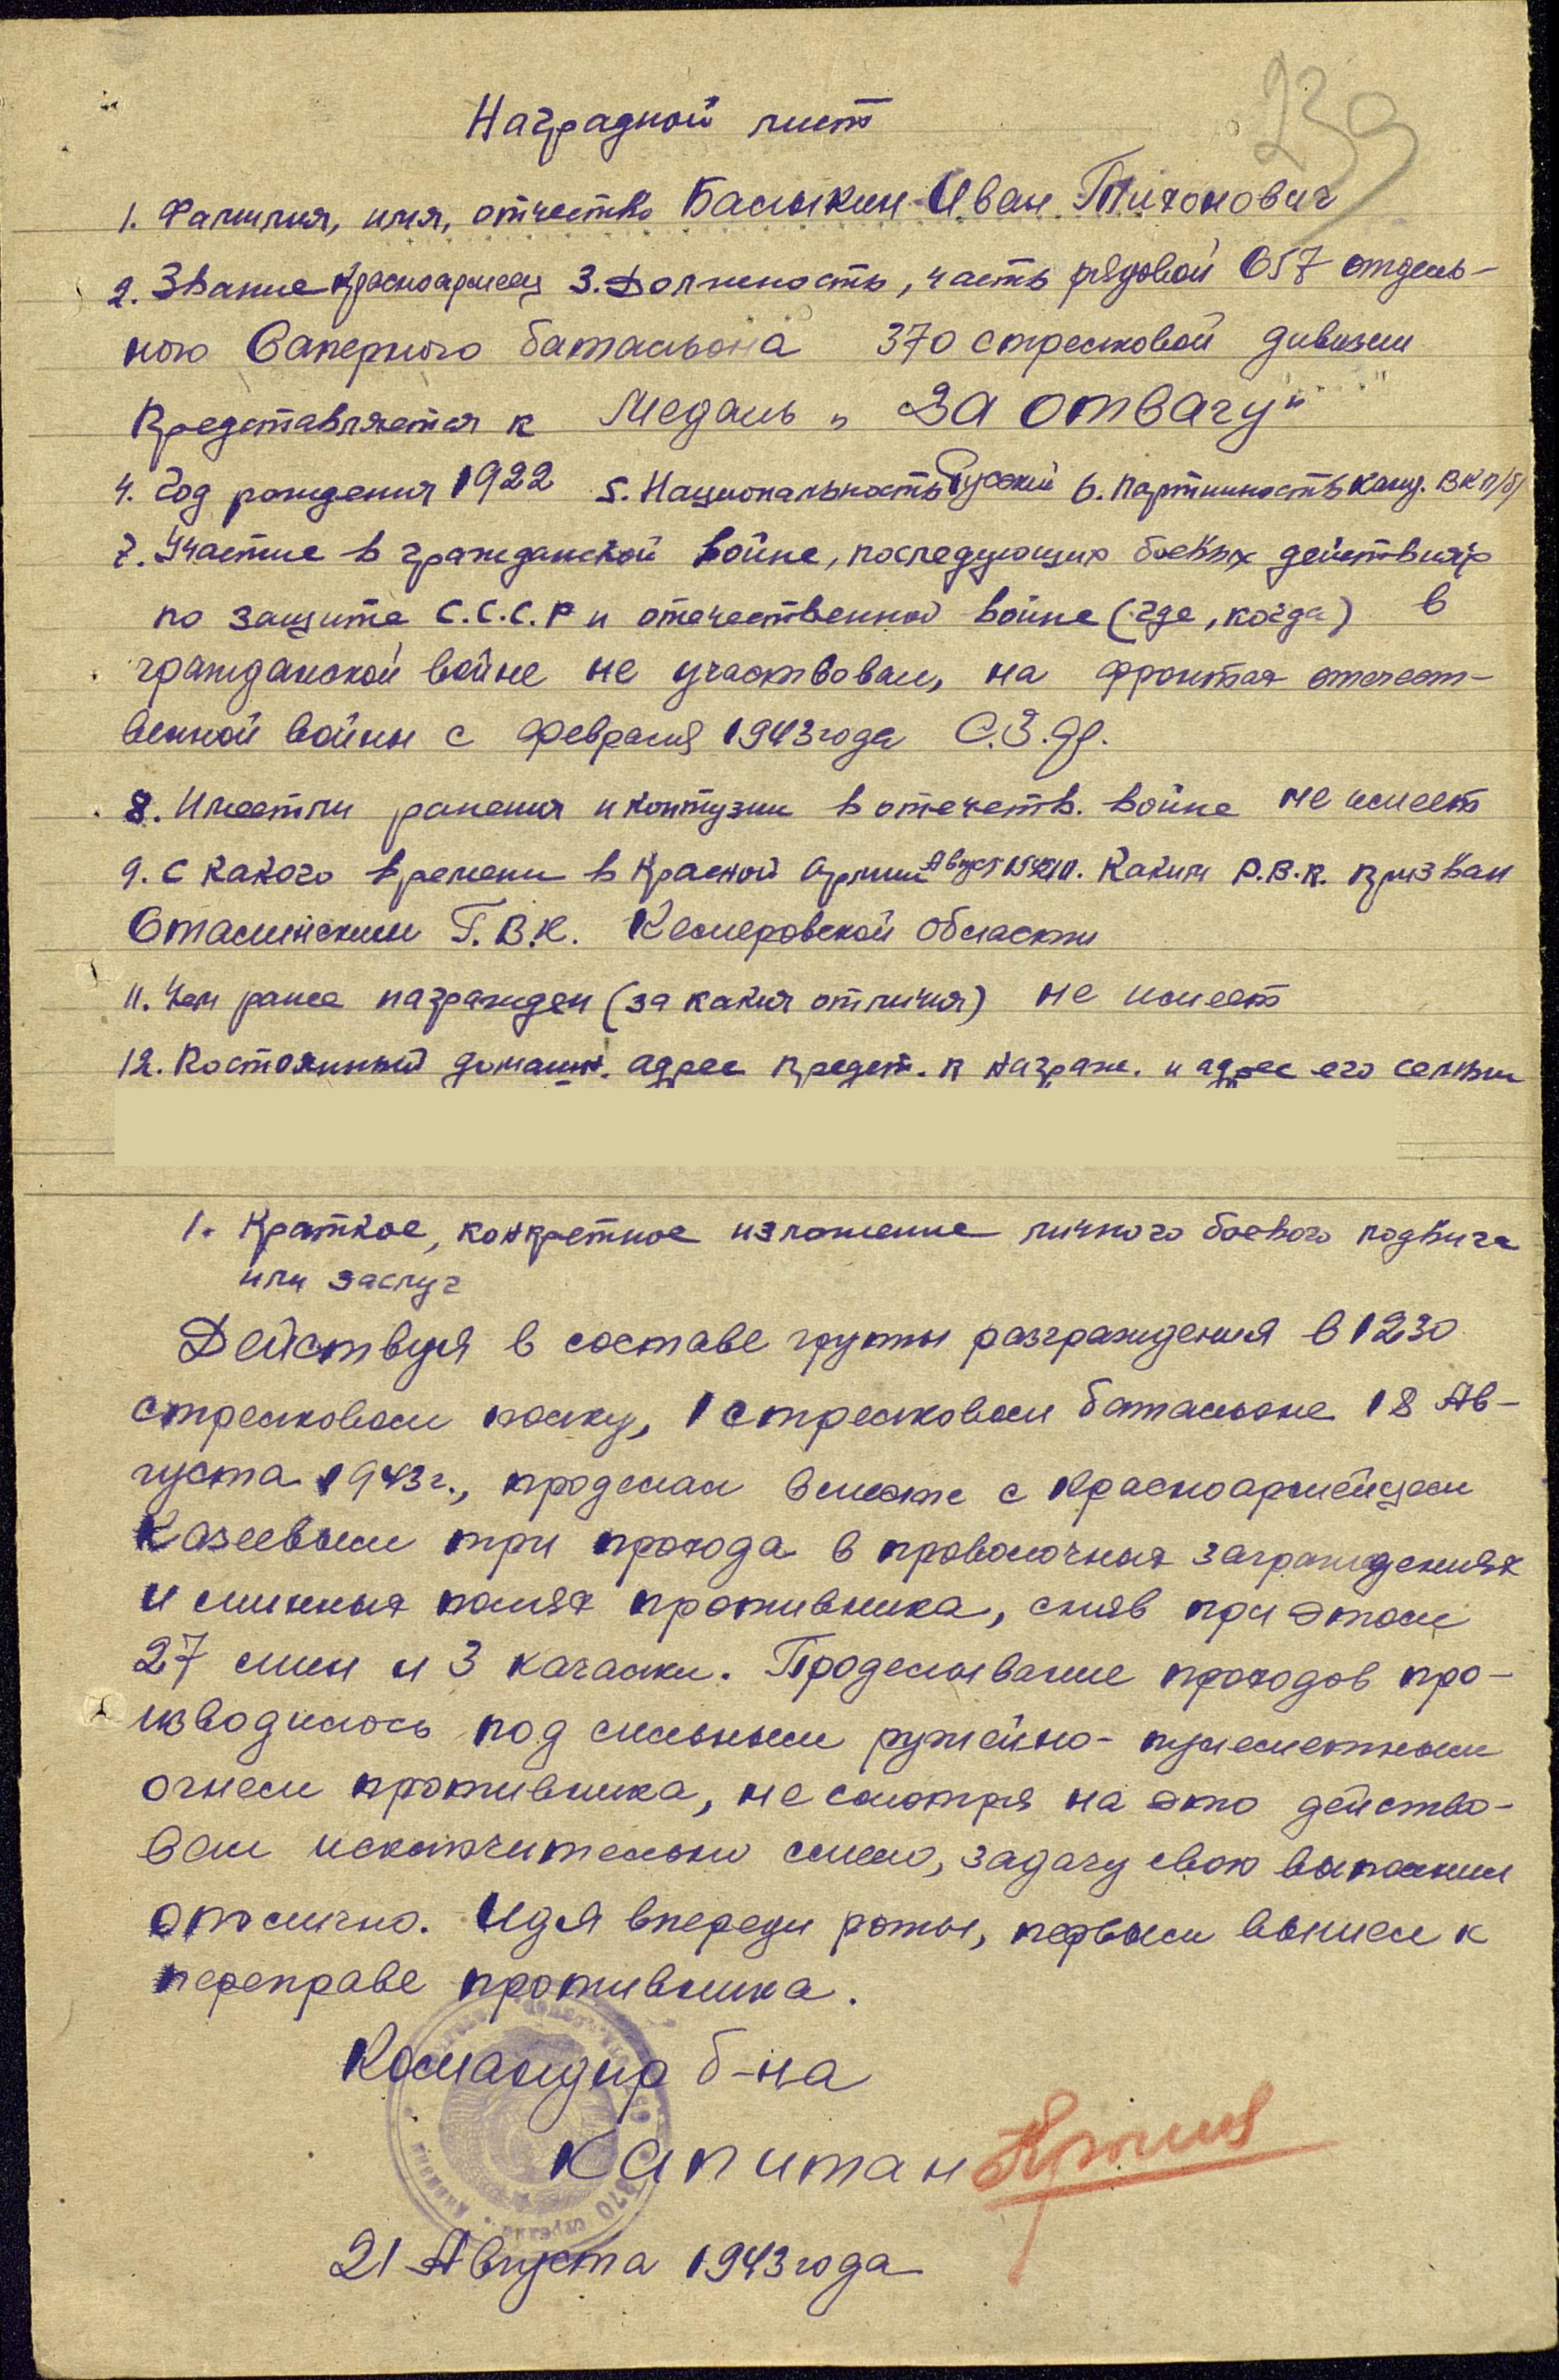 239
Наградной лист
1. Фамилия, имя, отчество Балыкин Иван Тихонович
2. Звание Красноармеец 3. Должность, часть рядовой 657 отдель-
ного Саперного батальона 370 стрелковой дивизии
Представляется к Медаль „За отвагу"
4. Год рождения 1922 5. Национальность Русский 6. Партийность канд. ВКП/б/
7. Участие в гражданской войне, последующих боевых действиях
по защите С.С.С.Р и отечественной войне (где, когда) в
гражданской войне не участвовал, на фронтах отечест-
венной войны с февраля 1943 года С.З.Ф.
8. Имеет ли ранения и контузии в отечеств. войне не имеет
9. С какого времени в Красной Армии Август Каким Р.В.К. призван
Сталинским Г.В.К. Кемеровской области
11. Чем ранее награжден (за какия отличия) не имеет
12. Постоянный домашн. адрес предст. к награж. и адрес его семьи
1. Краткое, конкретное изложение личного боевого подвига
или заслуг
Действуя в составе группы разграждения в 1230
стрелковом полку, 1 стрелковом батальоне 18 Ав-
густа 1943г., проделал вместе с красноармейцем
Казеевым три прохода в проволочных заграждениях
и минных полях противника, сняв при этом
27 мин и 3 качалки. Проделывание проходов про-
изводилось под сильным ружейно-пулеметным
огнем противника, не смотря на это действо-
вал исключительно смело, задачу свою выполнил
отлично. Идя впереди роты, первым вышел к
переправе противника.
Командир б-на
капитан
21 Августа 1943 года